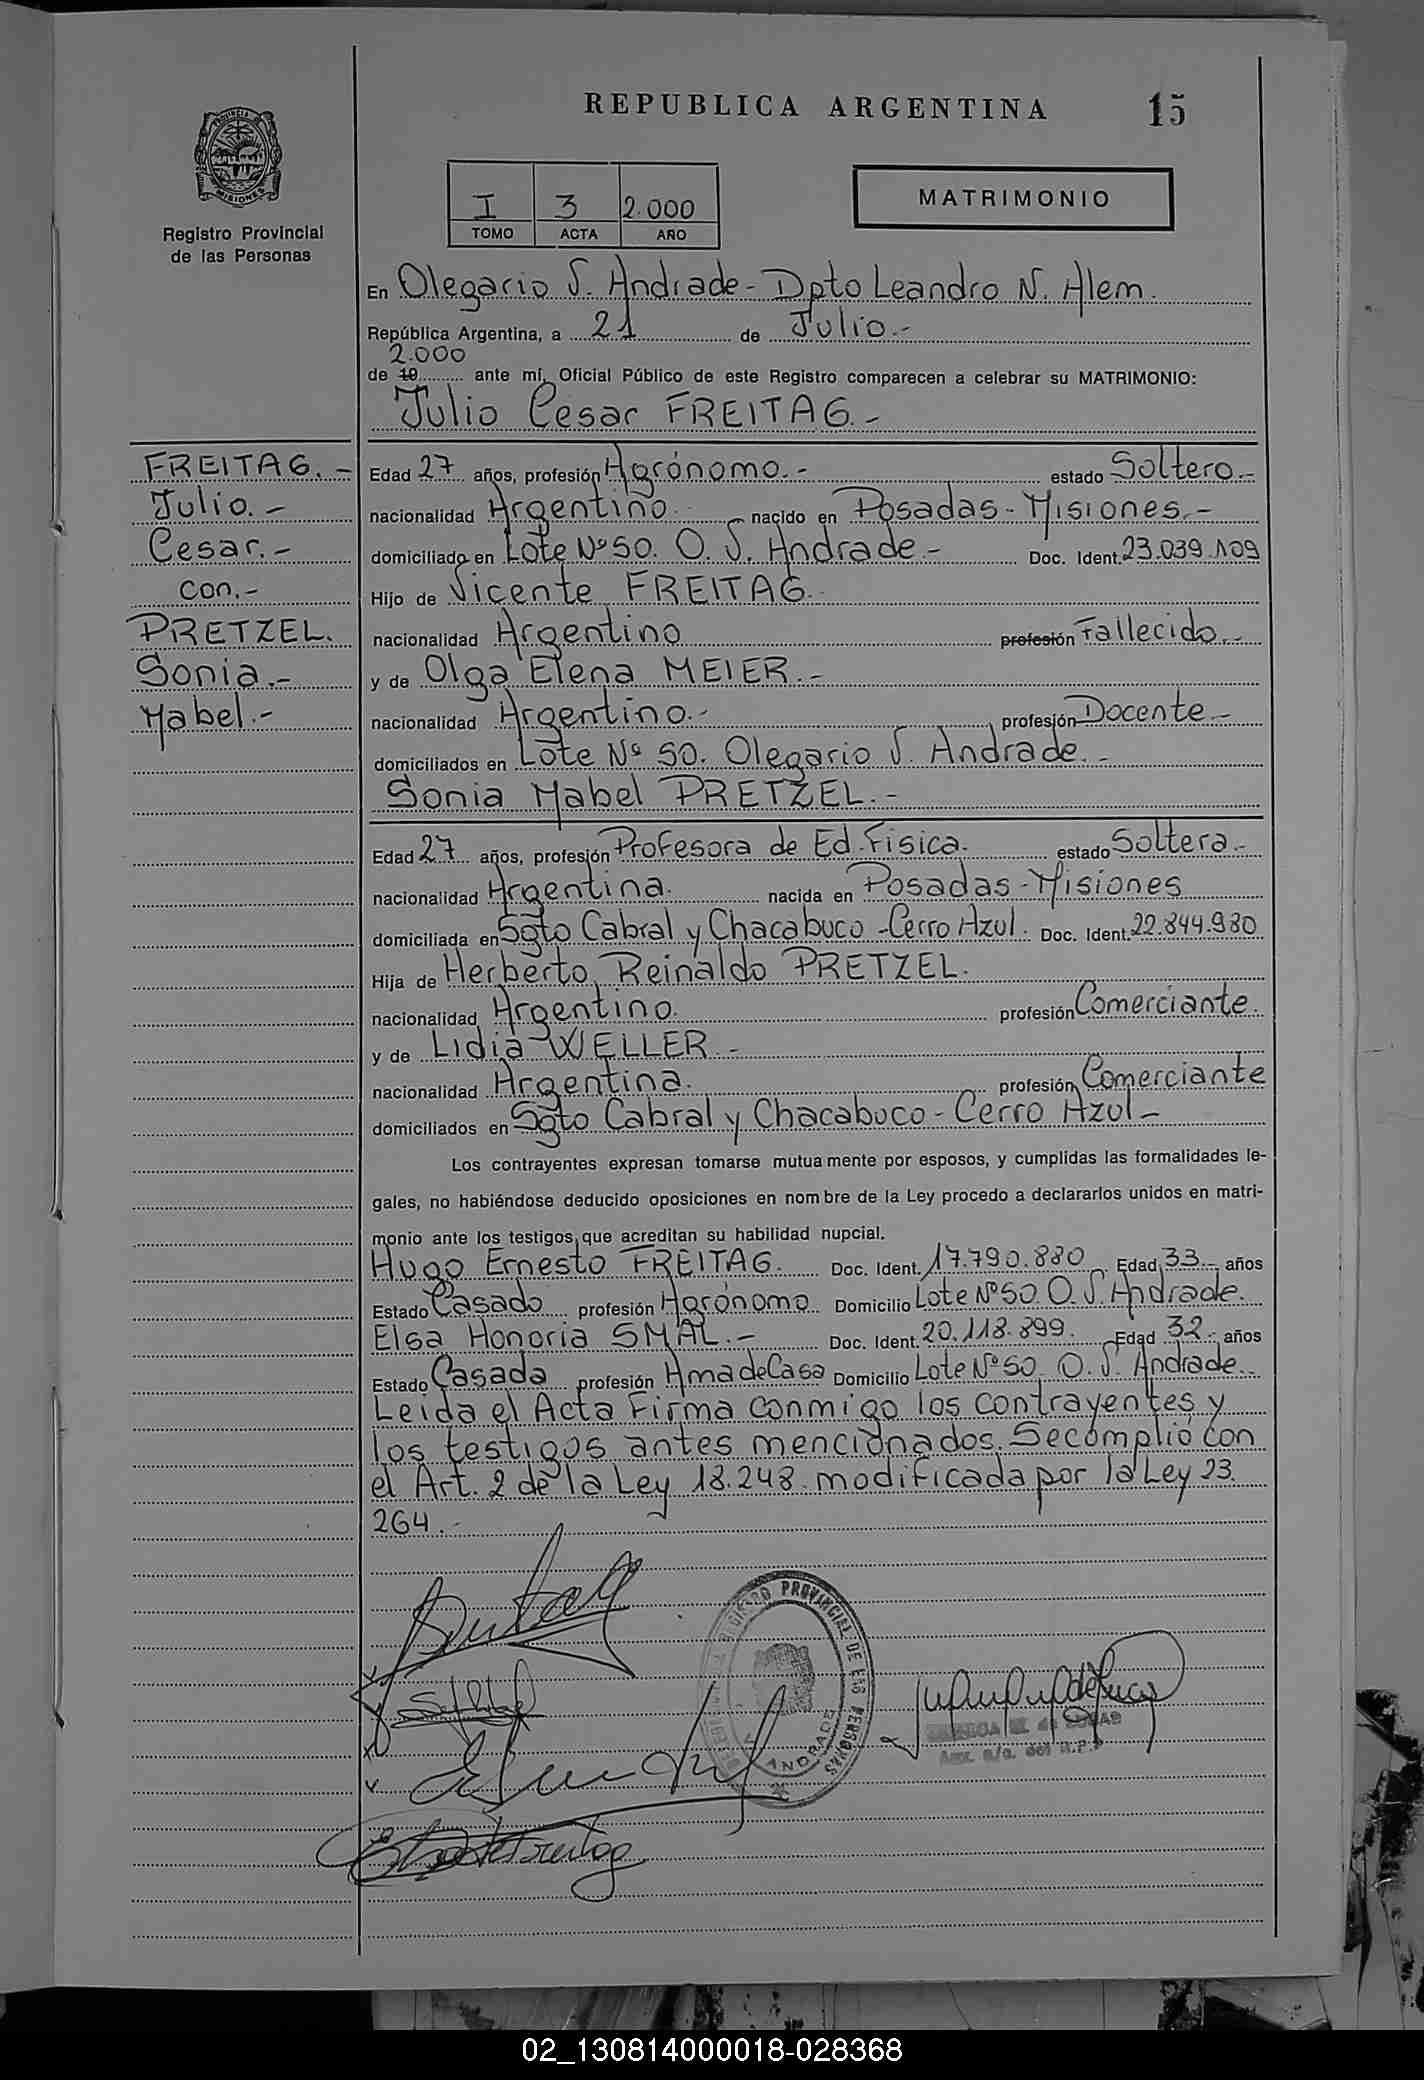 REPUBLICA ARGENTINA
15
PROVINCIA DE
MISIONES
Registro Provincial
de las Personas
I 3 2.000
TOMO ACTA AÑO
MATRIMONIO
En Olegario V. Andrade - Dpto Leandro N. Alem.
República Argentina, a 21 de Julio.-
2.000
de 19 ante mí, Oficial Público de este Registro comparecen a celebrar su MATRIMONIO:
Julio Cesar FREITAG.-
FREITAG.-
Julio.-
Cesar.-
con.-
PRETZEL.
Sonia.-
Mabel.-
Edad 27 años, profesión Agrónomo.- estado Soltero.-
nacionalidad Argentino nacido en Posadas - Misiones.-
domiciliado en Lote Nº 50. O. V. Andrade.- Doc. Ident. 23.039.109
Hijo de Vicente FREITAG.
nacionalidad Argentino profesión Fallecido.-
y de Olga Elena MEIER.-
nacionalidad Argentino.- profesión Docente-
domiciliados en Lote Nº 50. Olegario V. Andrade.-
Sonia Mabel PRETZEL.-
Edad 27 años, profesión Profesora de Ed. Fisica. estado Soltera.-
nacionalidad Argentina. nacida en Posadas - Misiones
domiciliada en Sgto Cabral y Chacabuco - Cerro Azul. Doc. Ident. 22.844.980
Hija de Herberto Reinaldo PRETZEL.
nacionalidad Argentino. profesión Comerciante.
y de Lidia WELLER.-
nacionalidad Argentina. profesión Comerciante
domiciliados en Sgto Cabral y Chacabuco - Cerro Azul-
Los contrayentes expresan tomarse mutuamente por esposos, y cumplidas las formalidades le-
gales, no habiéndose deducido oposiciones en nombre de la Ley procedo a declararlos unidos en matri-
monio ante los testigos que acreditan su habilidad nupcial.
Hugo Ernesto FREITAG. Doc. Ident. 17.790.880 Edad 33.- años
Estado Casado profesión Agrónomo Domicilio Lote Nº 50 O. V. Andrade.
Elsa Honoria SMAL.- Doc. Ident. 20.118.899. Edad 32.- años
Estado Casada profesión Ama de Casa Domicilio Lote Nº 50. O. V. Andrade.
Leida el Acta Firma conmigo los contrayentes y
los testigos antes mencionados. Se complió con
el Art. 2 de la Ley 18.248. modificada por la Ley 23.
264.-
REGISTRO PROVINCIAL DE LAS PERSONAS
ANDRADE
02_130814000018-028368